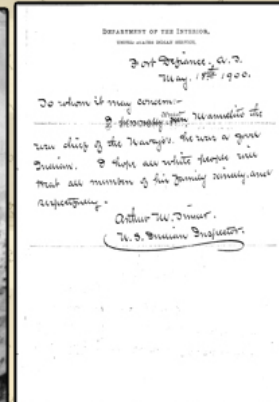 DEPARTMENT OF THE INTERIOR,
UNITED STATES INDIAN SERVICE,
Fort Defiance, A. T.
May. 18th 1900.
To whom it may concern:-
I Manuelito the
chief of the Navajos. he was a good
Indian. I hope all white people will
treat all members of his family kindly, and
respectfully.
Arthur M.
U. S. Indian Inspector.